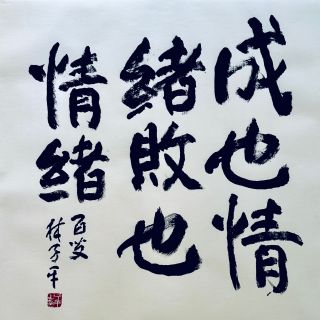 成也情
緒敗也
情緒
百岁
林子平